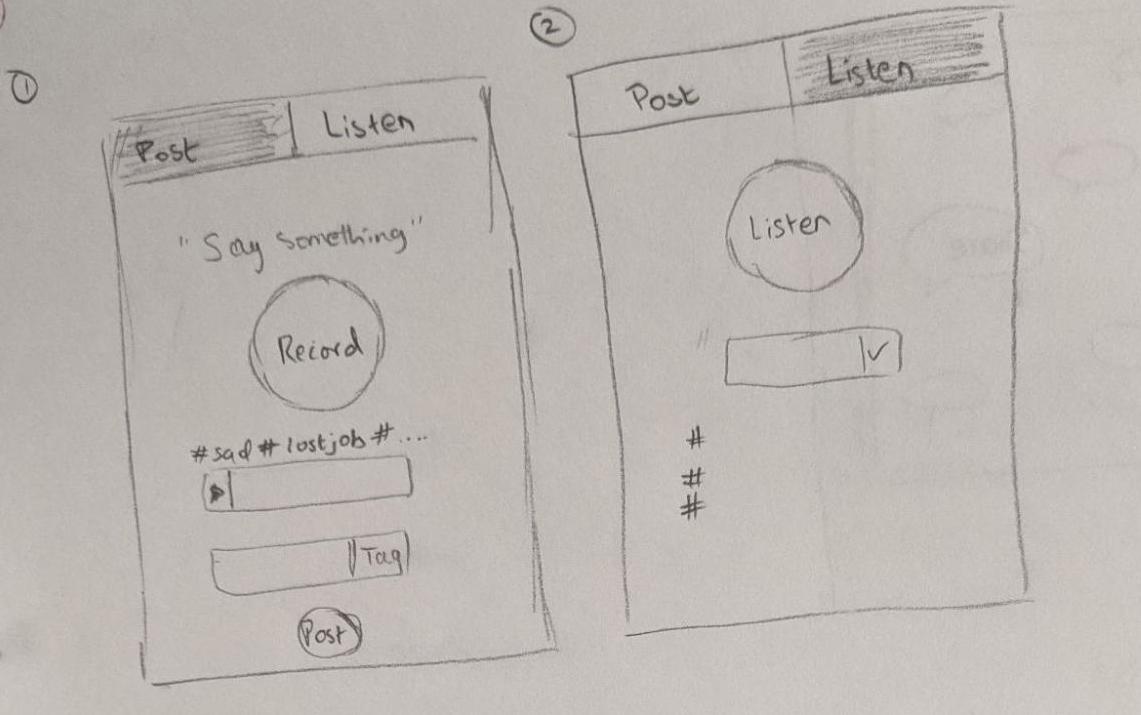 ①
Post Listen
"Say something"
Record
#sad #lostjob #....
Tag
Post
②
Post Listen
Listen
#
#
#